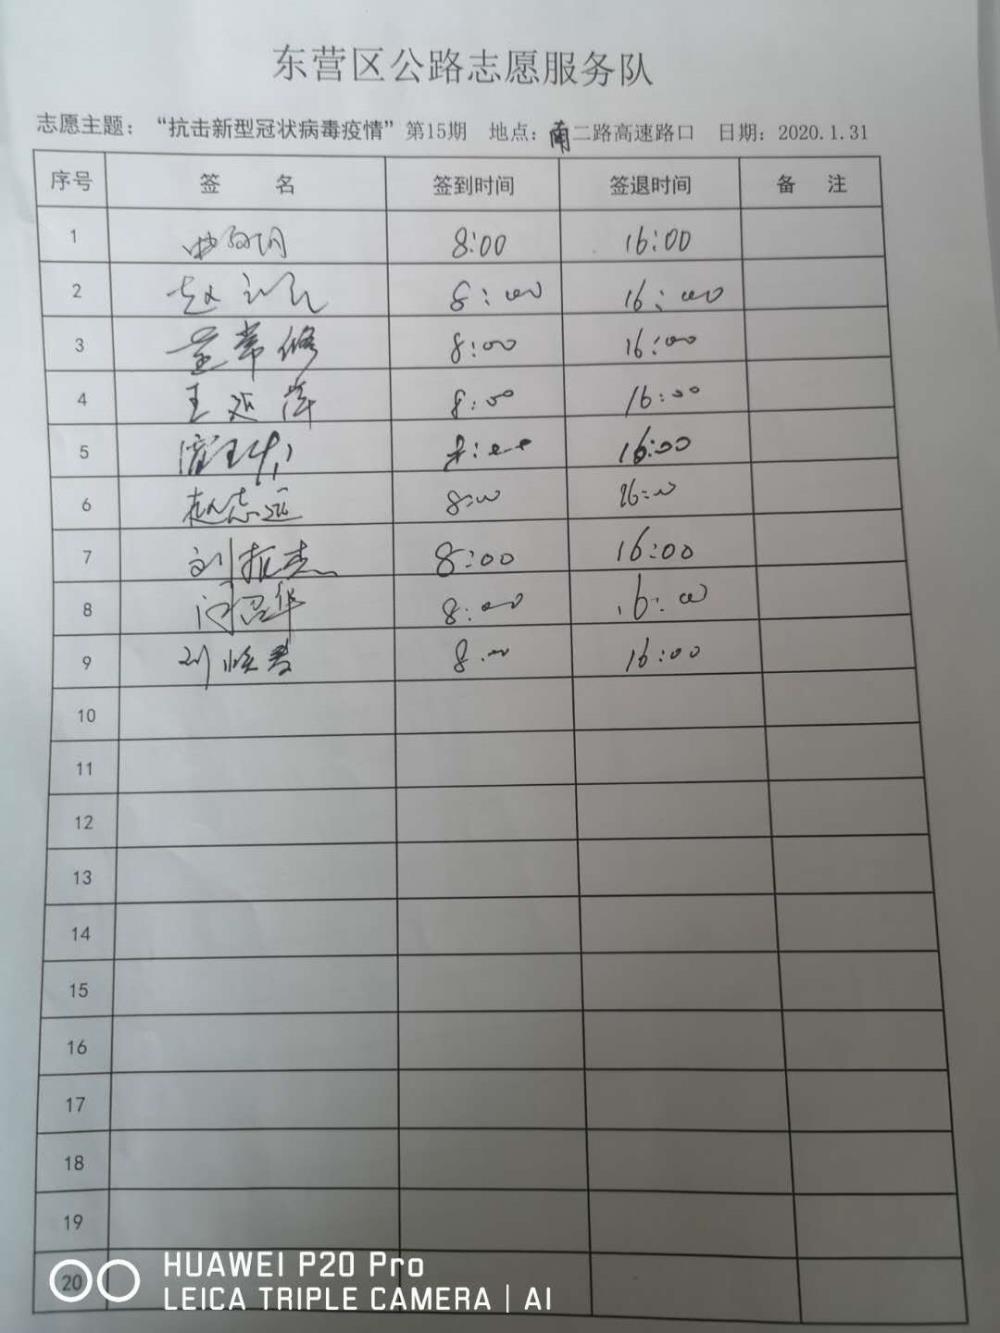 东营区公路志愿服务队
志愿主题：“抗击新型冠状病毒疫情”第15期 地点：南二路高速路口 日期：2020.1.31
序号 签 名 签到时间 签退时间 备 注
1 8:00 16:00
2 赵 8:00 16:00
3 常修 8:00 16:00
4 王延萍 8:00 16:00
5 8:00 16:00
6 赵志远 8:00 16:00
7 刘振杰 8:00 16:00
8 8:00 16:00
9 刘 8:00 16:00
10
11
12
13
14
15
16
17
18
19
20
HUAWEI P20 Pro
LEICA TRIPLE CAMERA | AI